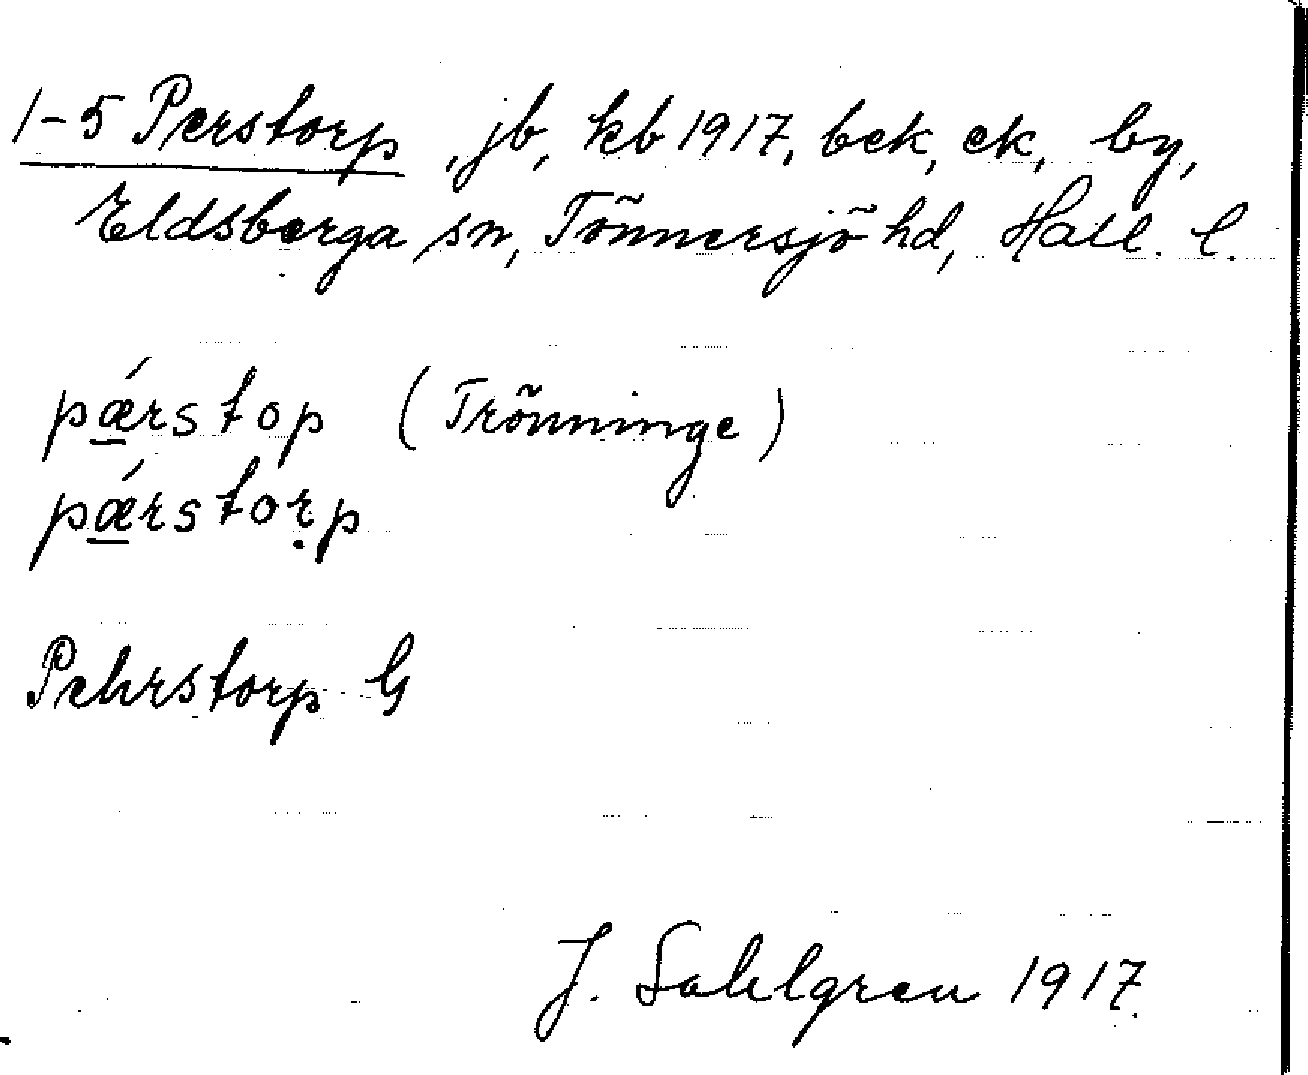 1-5 Perstorp, jb, kb 1917, bek, ek, by,
Eldsberga sn, Tönnersjö hd, Hall. l.
pǽ̱rstop (Trönninge)
pǽ̱rstoṛp
Pehrstorp G
J. Sahlgren 1917.